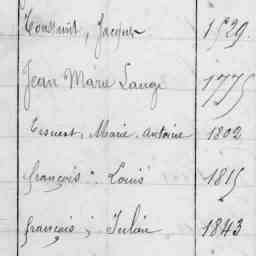 Toussaint, Jacques 1529.
Jean Marie Lauge 1775
Ernest, Marie. Antoine 1802
françois " Louis 1815
françois, Julien 1843